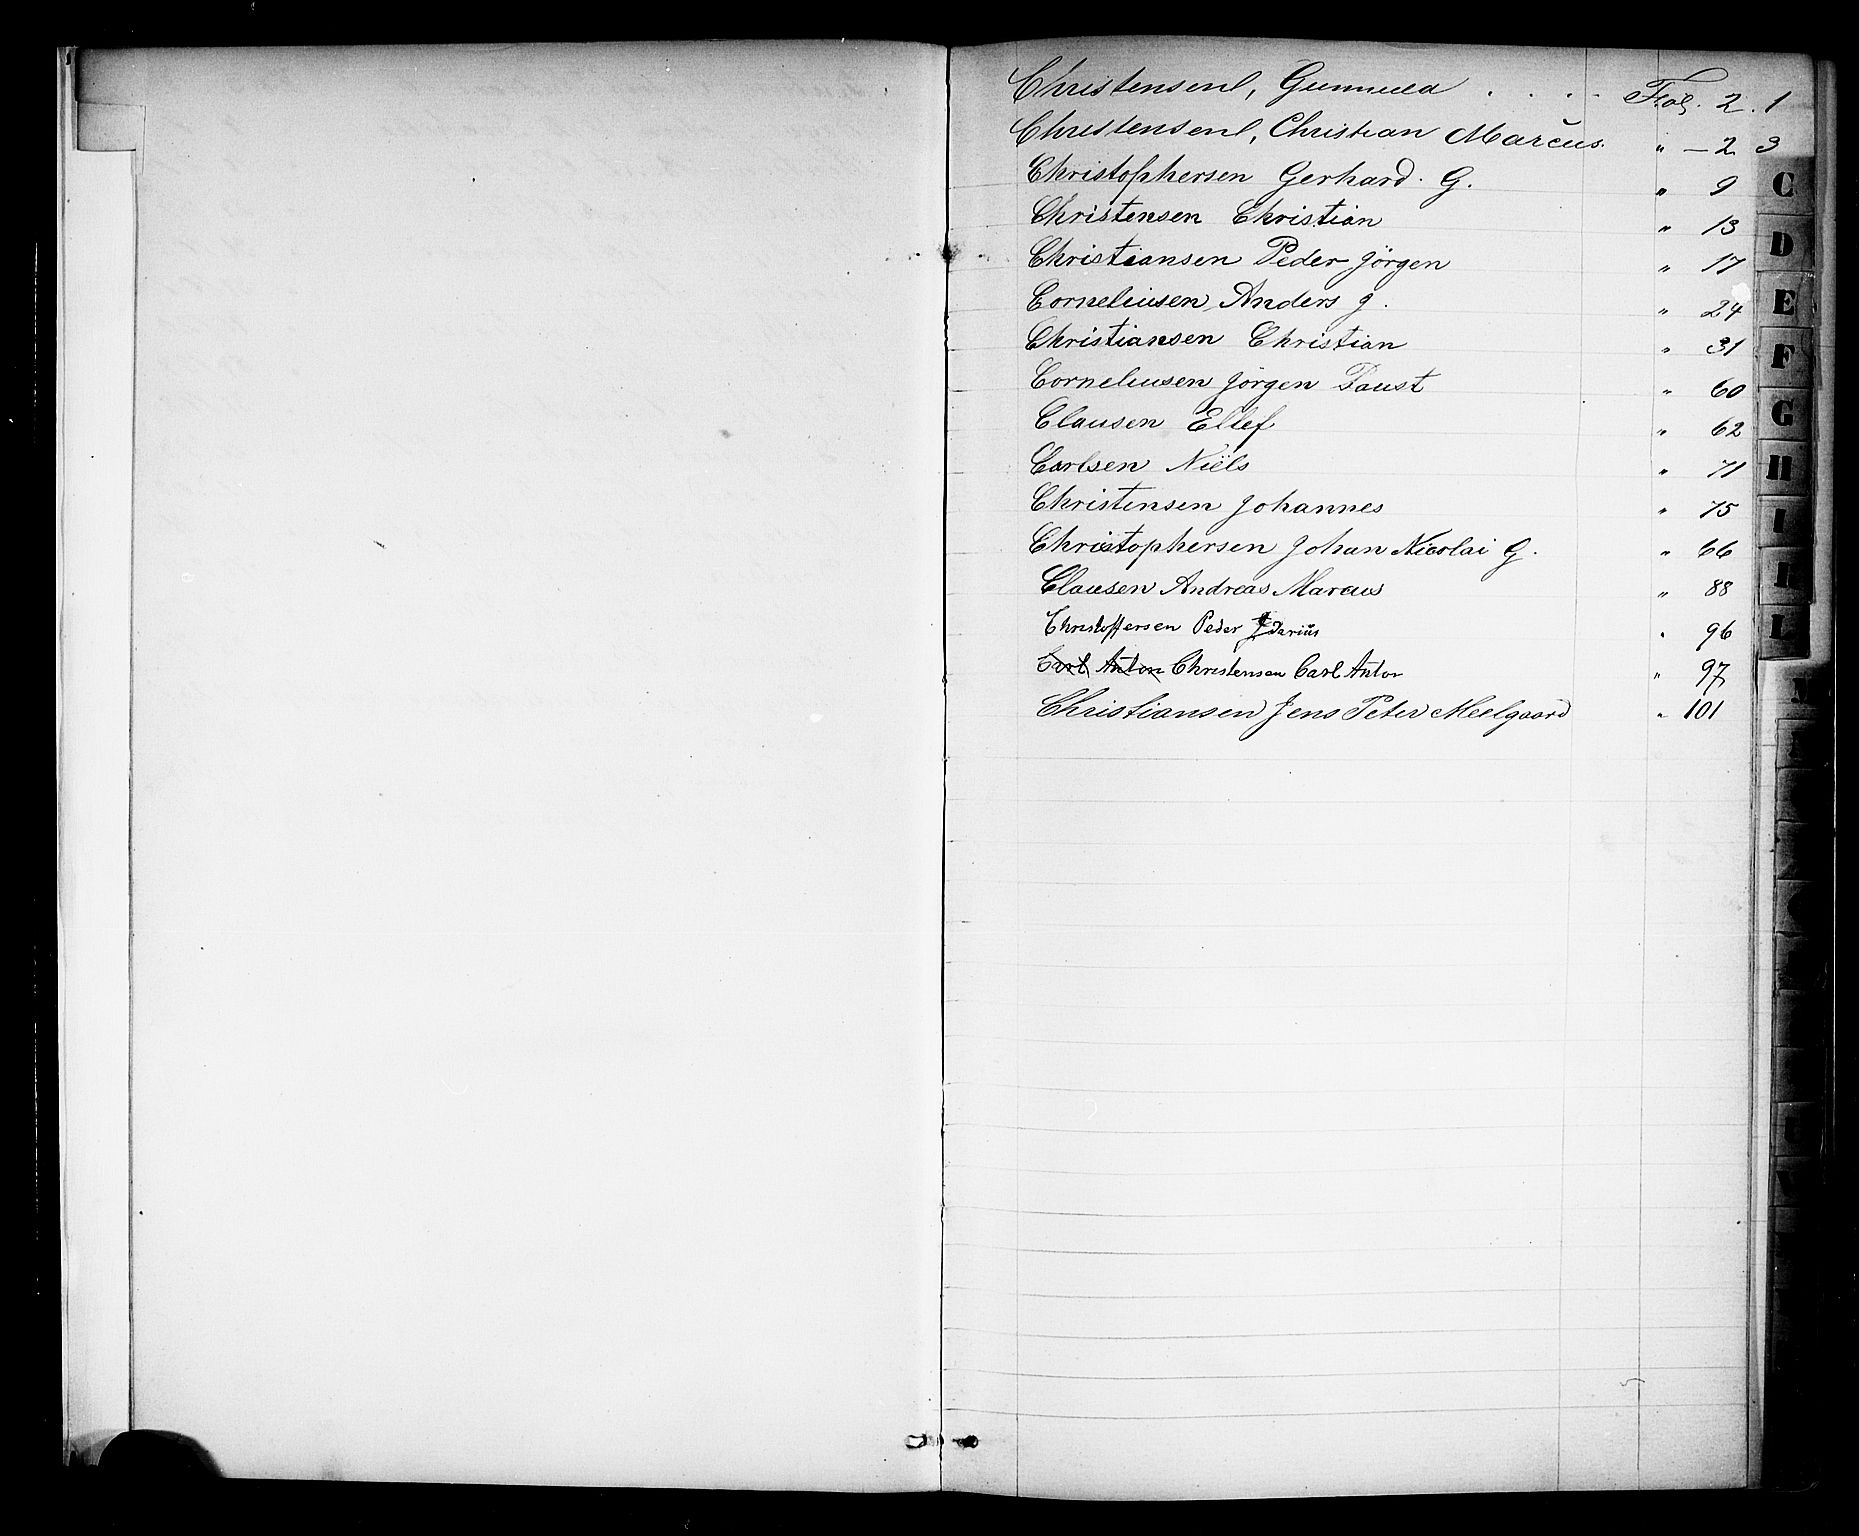 Christensen, Gunnuld . . . . Fol. 2. 1
Christensen, Christian Marcus. " — 2 3
Christophersen Gerhard. G. " 9
Christensen Christian " 13
Christiansen Peder Jörgen " 17
Corneliusen Anders J. " 24
Christiansen Christian " 31
Corneliusen Jörgen Faust " 60
Clausen Ellef " 62
Carlsen Niels " 71
Christensen Johannes " 75
Christophersen Johan Nicolai G. " 66
Clausen Andreas Marcus " 88
Christoffersen Peder " 96
Carl Anton Christensen Carl Anton " 97
Christiansen Jens Peter Meelgaard " 101
C
D
E
F
G
H
I
K
L